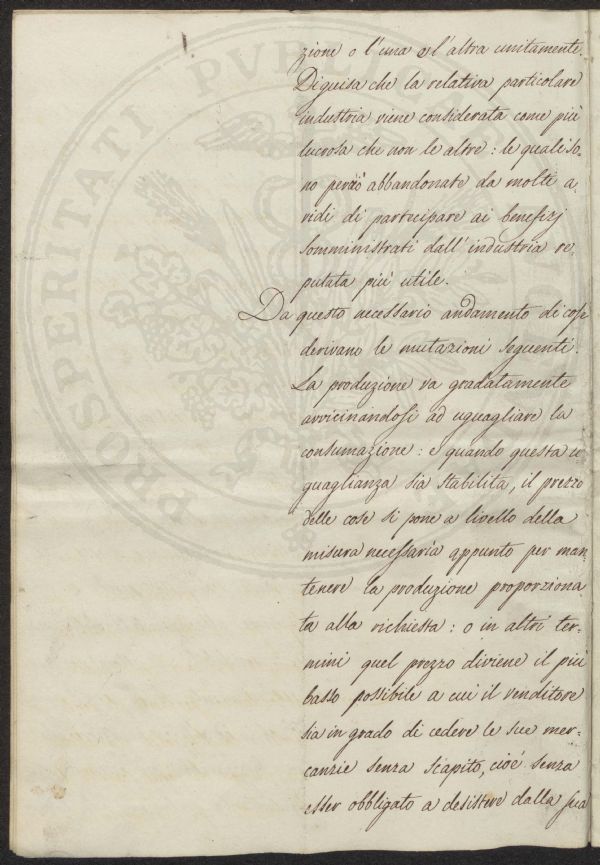 zione o l'una e l'altra unitamente.
Diguisa che la relativa particolare
industria viene considerata come più
lucrosa che non le altre: le quali so-
no perciò abbandonate da molti a-
vidi di partecipare ai benefizj
somministrati dall'industria re-
putata più utile.
Da questo necessario andamento di cose
derivano le mutazioni seguenti.
La produzione va gradatamente
avvicinandosi ad uguagliare la
consumazione: e quando questa u-
guaglianza sia stabilita, il prezzo
delle cose si pone a livello della
misura necessaria appunto per man
tenere la produzione proporziona
ta alla richiesta: o in altri ter-
mini quel prezzo diviene il più
basso possibile a cui il venditore
sia in grado di cedere le sue mer-
canzie senza scapito, cioè senza
esser obbligato a desistere dalla sua
PROSPERITATI PVBL